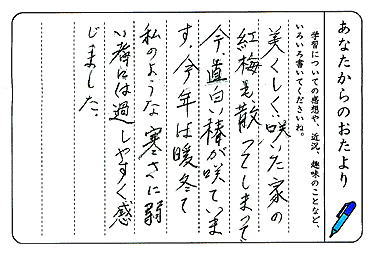 あなたからのおたより
学習についての感想や、近況、趣味のことなど、
いろいろ書いてくださいね。
美くしく咲いた家の
紅梅も散ってしまって
今、真白い椿が咲いていま
す。今年は暖冬で
私のような寒さに弱
い者には過しやすく感
じました。